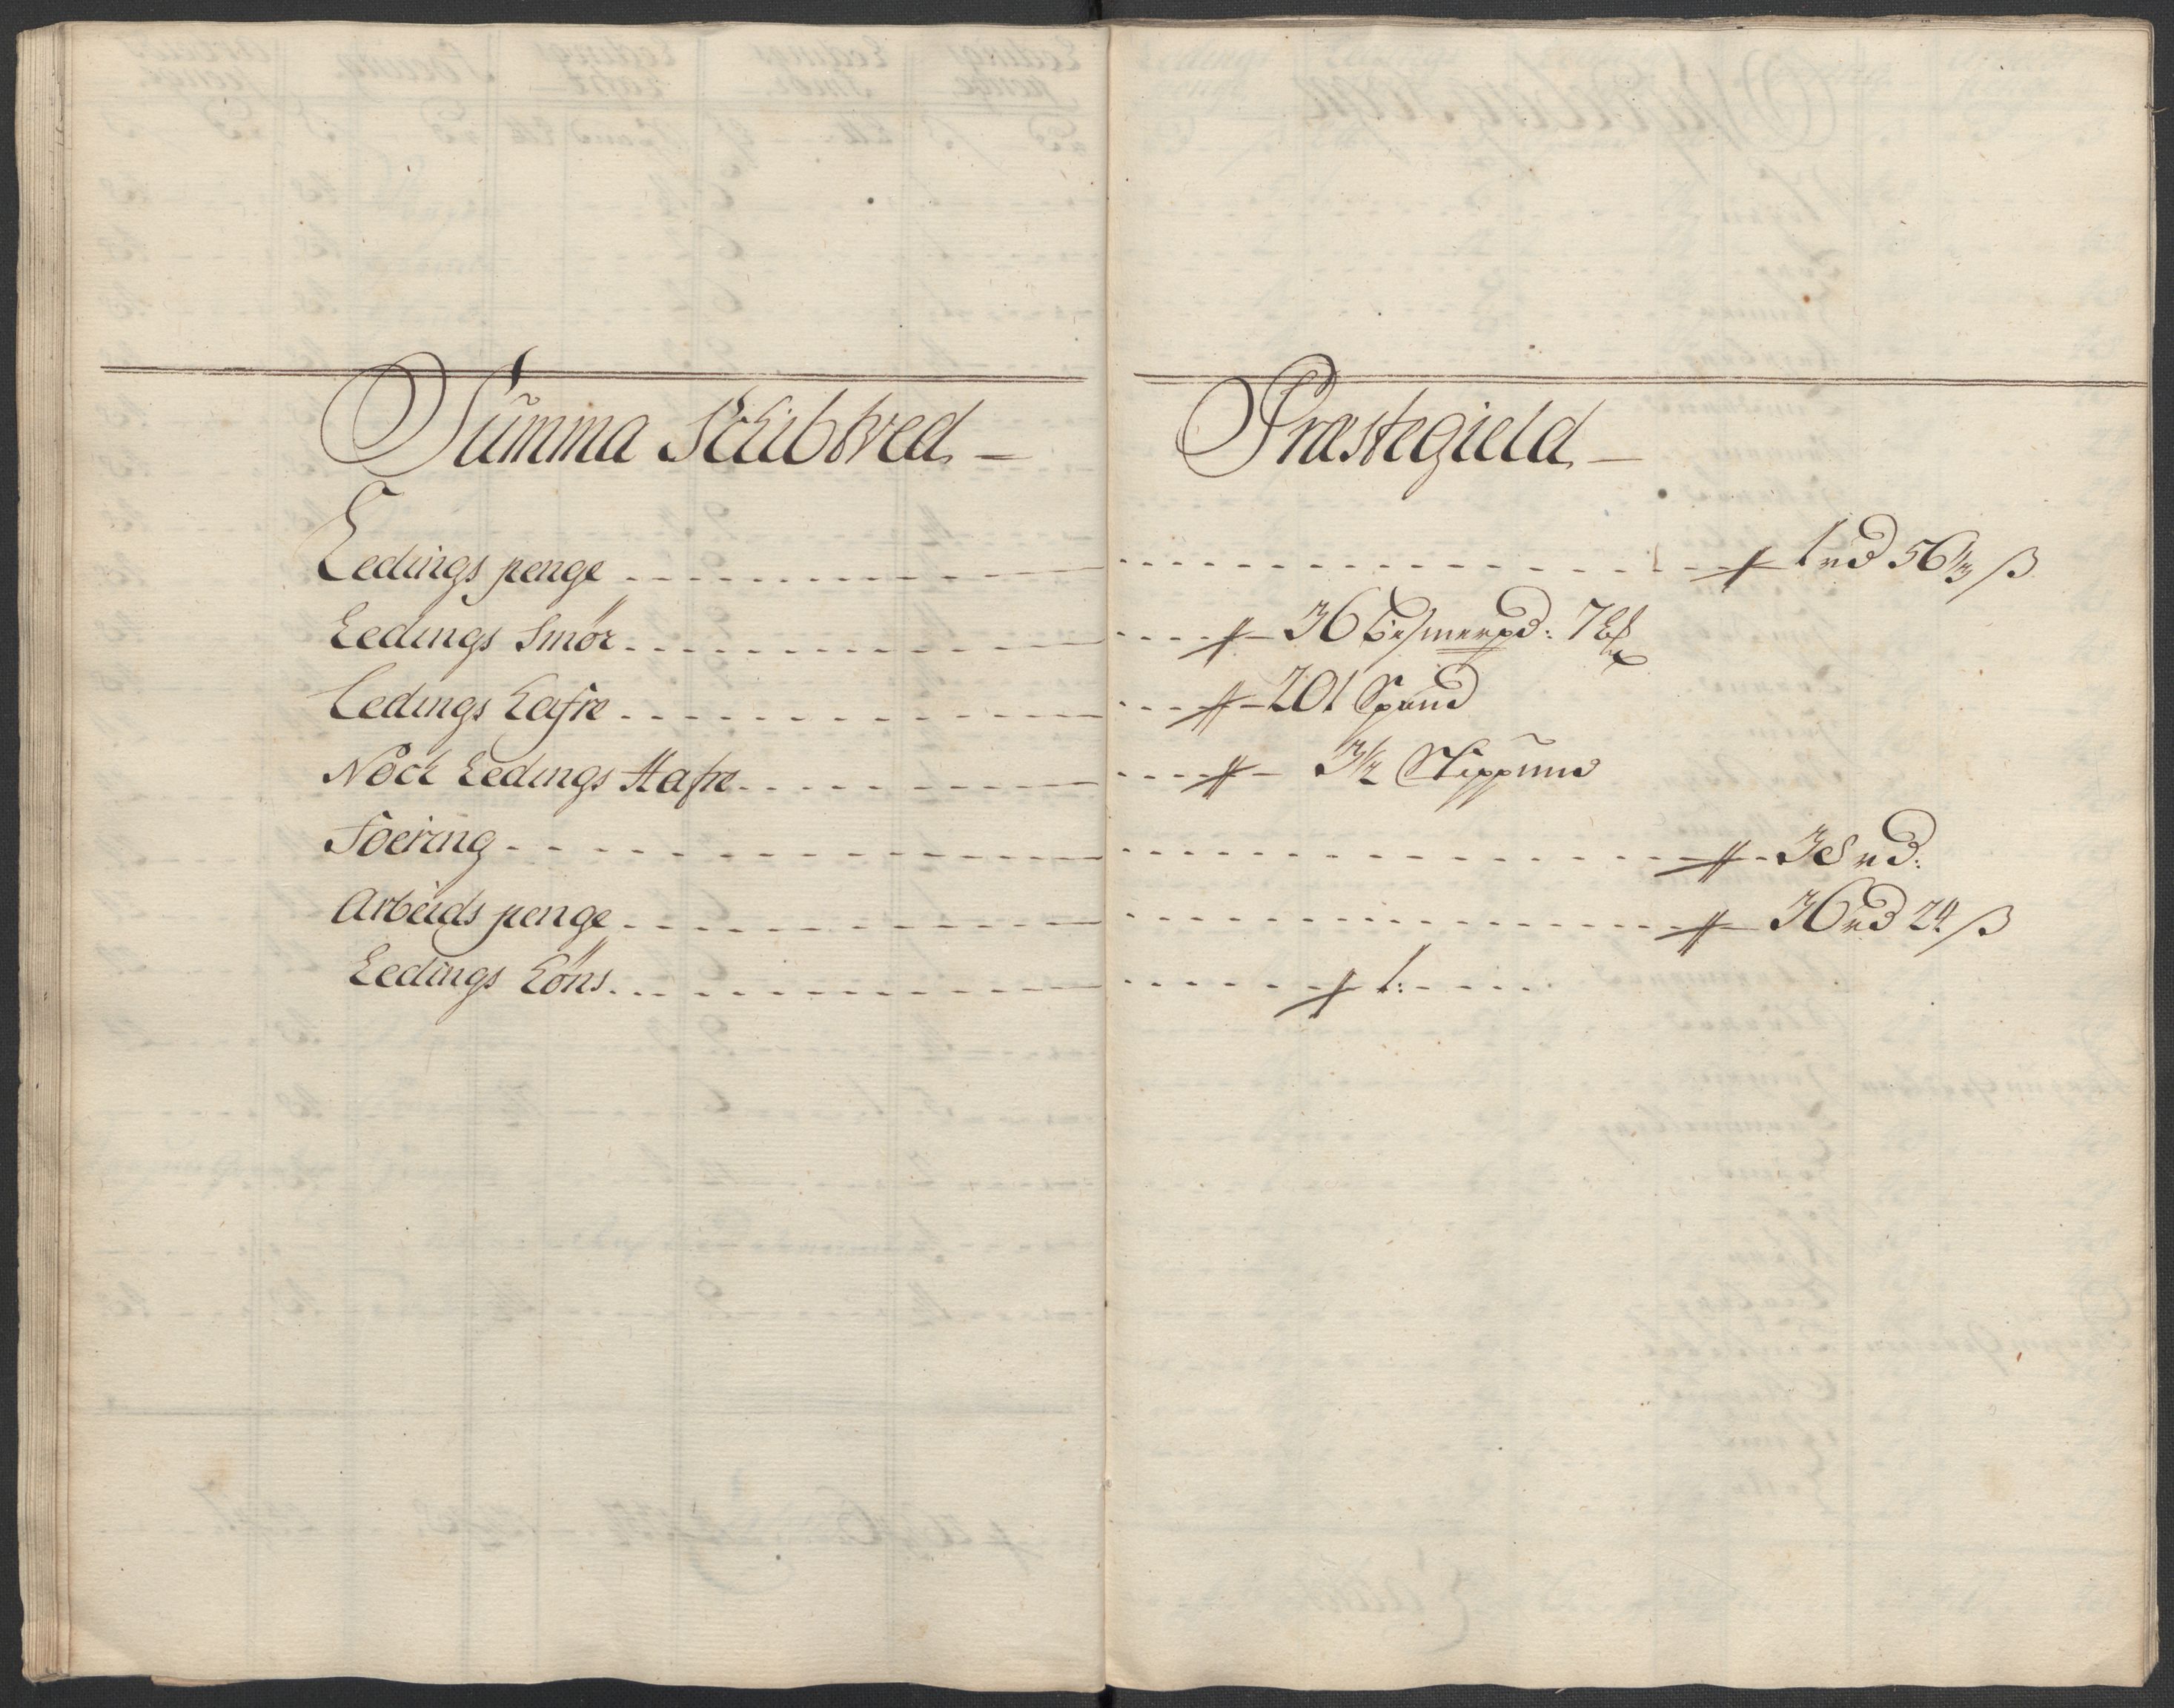 Summa Schibtved – Præstegield –
Ledings penge - - - 1 rd 56 1/3 ß
Ledings Smör - - - 36 Bismerpd: 7
Ledings Hafre - - - 201 Spand
Noch Ledings Hafre - - - 3 1/2 Skippund
Foering - - - 38 rd:
Arbeids penge - - - 36 rd 24 ß
Ledings Höns - - - 1: